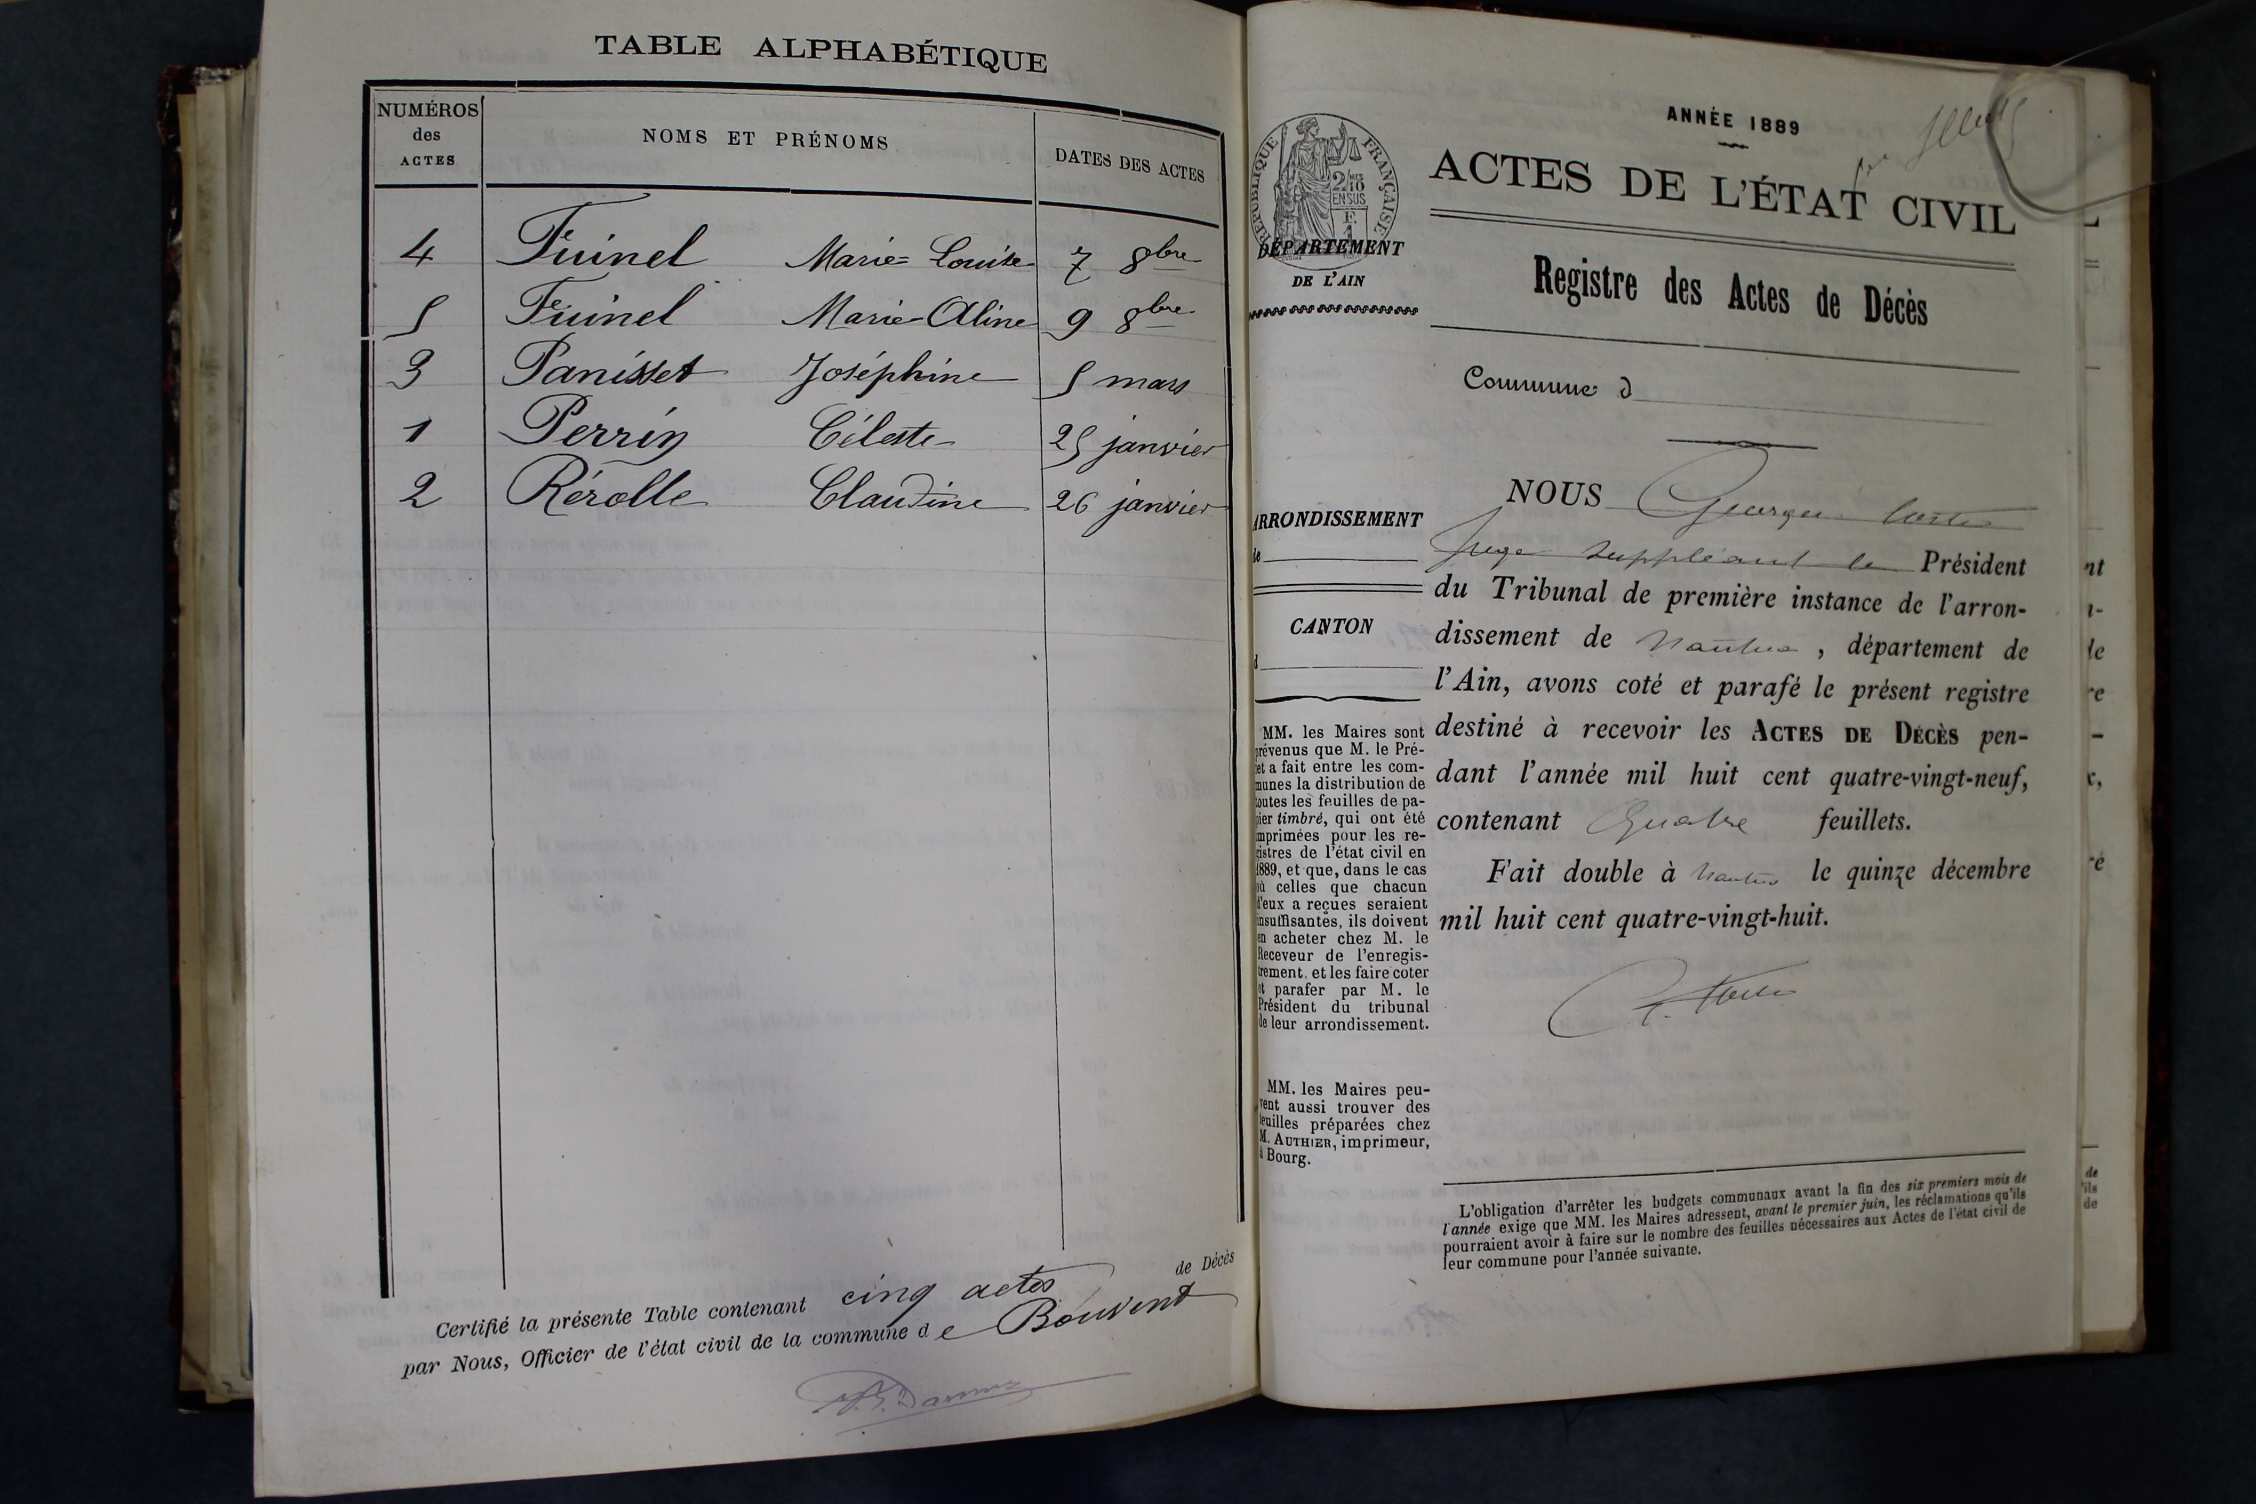 TABLE ALPHABÉTIQUE
NUMÉROS
des
ACTES
NOMS ET PRÉNOMS
DATES DES ACTES
4 Fuinel Marie=Louise 7 8bre
5 Fuinel Marie-Aline 9 8bre
3 Panisset Joséphine 5 mars
1 Perrin Céleste 25 janvier
2 Rérolle Claudine 26 janvier
Certifié la présente Table contenant cinq actes de Décès
par Nous, Officier de l'état civil de la commune de Bouvent
ANNÉE 1889
ACTES DE L'ÉTAT CIVIL
RÉPUBLIQUE FRANÇAISE
2/10
EN SUS
DÉPARTEMENT
DE L'AIN
Registre des Actes de Décès
Commune d
NOUS Georges
Juge suppléant le Président
du Tribunal de première instance de l'arron-
dissement de Nantua, département de
l'Ain, avons coté et parafé le présent registre
destiné à recevoir les ACTES DE DÉCÈS pen-
dant l'année mil huit cent quatre-vingt-neuf,
contenant Quatre feuillets.
Fait double à Nantua le quinze décembre
mil huit cent quatre-vingt-huit.
ARRONDISSEMENT
de
CANTON
d
MM. les Maires sont
prévenus que M. le Pré-
fet a fait entre les com-
munes la distribution de
toutes les feuilles de pa-
pier timbré, qui ont été
imprimées pour les re-
gistres de l'état civil en
1889, et que, dans le cas
où celles que chacun
d'eux a reçues seraient
insuffisantes, ils doivent
en acheter chez M. le
Receveur de l'enregis-
trement, et les faire coter
et parafer par M. le
Président du tribunal
de leur arrondissement.
MM. les Maires peu-
vent aussi trouver des
feuilles préparées chez
M. AUTHIER, imprimeur,
à Bourg.
L'obligation d'arrêter les budgets communaux avant la fin des six premiers mois de
l'année exige que MM. les Maires adressent, avant le premier juin, les réclamations qu'ils
pourraient avoir à faire sur le nombre des feuilles nécessaires aux Actes de l'état civil de
leur commune pour l'année suivante.